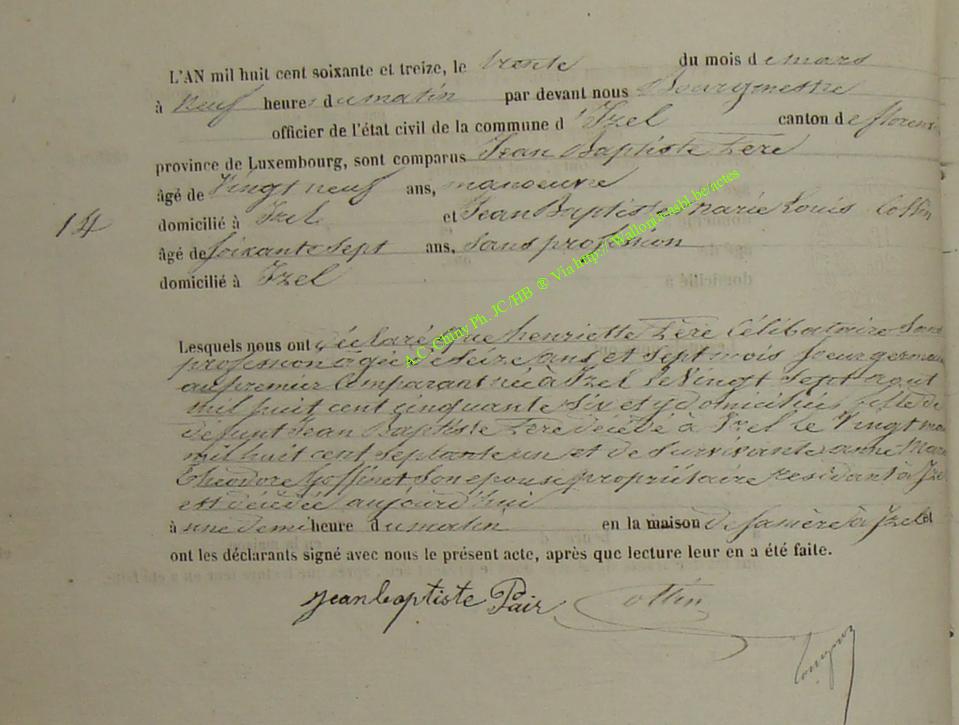 L'AN mil huit cent soixante et treize, le trente du mois de mars
à neuf heures du matin par devant nous Bourgmestre
officier de l'état civil de la commune d'Izel canton de floren
province de Luxembourg, sont comparus Jean Baptiste Père
âgé de Vingt neuf ans, manoeuvre
14
domicilié à Izel et Jean Baptiste Marie Louis Cottin
âgé de soixante sept ans, sans profession
domicilié à Izel
Lesquels nous ont déclaré que henriette Père Célibataire Sans
profession agée de seize ans et sept mois soeur germai
au premier Comparant née à Izel le Vingt sept aout
mil huit cent cinquante six et y domiciliée fille de
défunt Jean Baptiste Père décédé à Izel le Vingt ma
mil huit cent septante un et de survivante anne Mar
Théodore Goffinet son épouse propriétaire residant à Ize
est décédée aujourd'hui
à une demi heure du matin en la maison de sa mère à Izel et
ont les déclarants signé avec nous le présent acte, après que lecture leur en a été faite.
jean baptiste Pair Cottin
A.C. Chiny Ph. JC/HB ® Via http://wallonia-asbl.be/actes